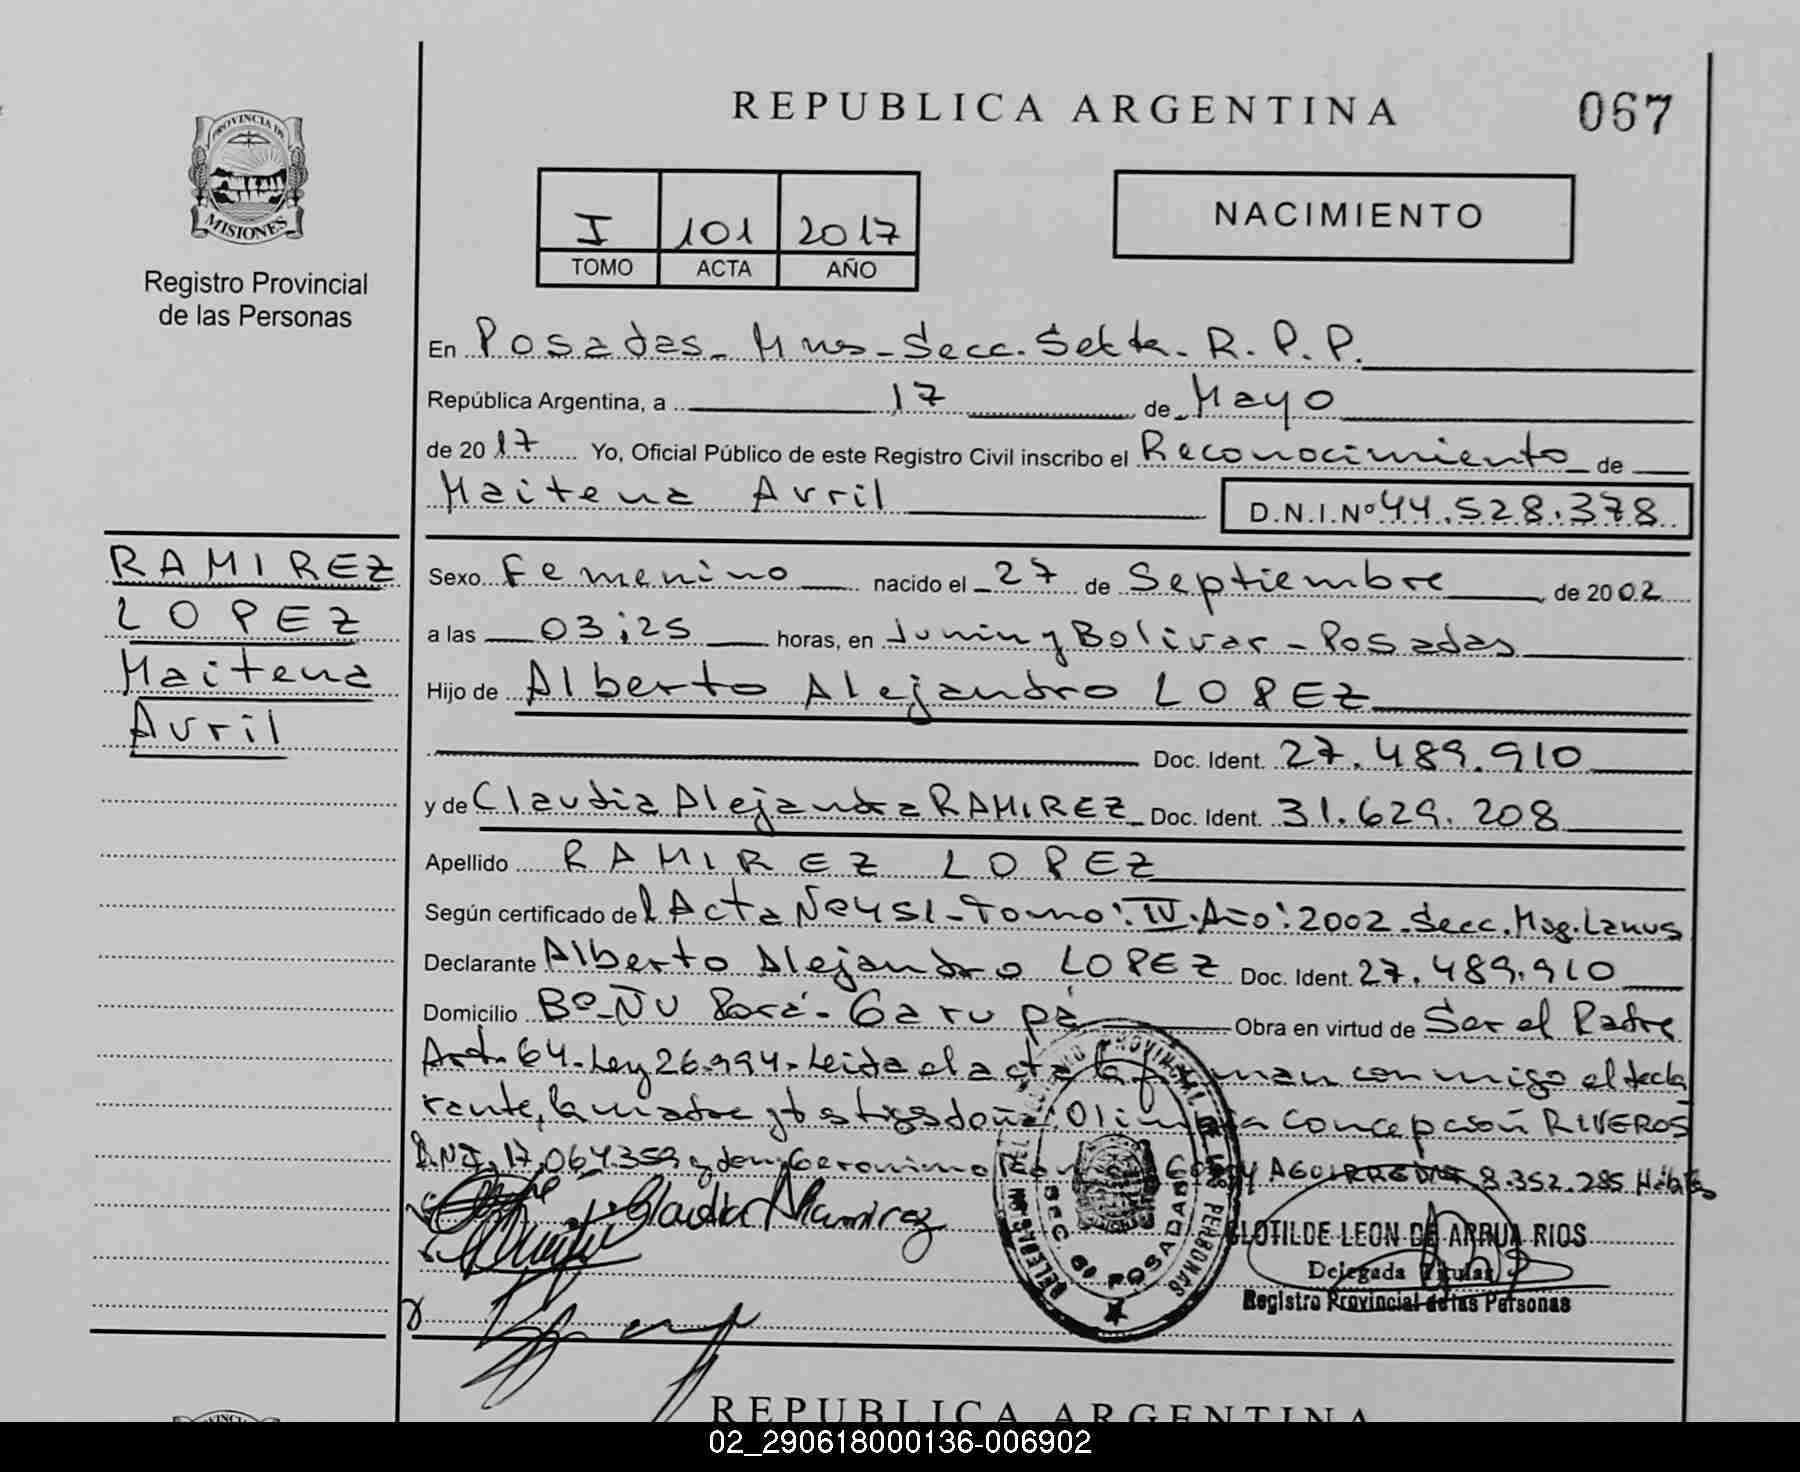 REPUBLICA ARGENTINA
067
PROVINCIA DE
MISIONES
Registro Provincial
de las Personas
I 101 2017
TOMO ACTA AÑO
NACIMIENTO
En Posadas - Mnes - Secc. Sexta - R. P. P.
República Argentina, a 17 de Mayo
de 2017 Yo, Oficial Público de este Registro Civil inscribo el Reconocimiento de
Maitena Avril D.N.I.Nº 44.528.378
RAMIREZ
LOPEZ
Maitena
Avril
Sexo Femenino nacido el 27 de Septiembre de 2002
a las 03:25 horas, en Junin y Bolivar - Posadas
Hijo de Alberto Alejandro LOPEZ
Doc. Ident. 27.489.910
y de Claudia Alejandra RAMIREZ Doc. Ident. 31.629.208
Apellido RAMIREZ LOPEZ
Según certificado del Acta Nº 451 - Tomo: IV. Año: 2002. Secc. Lanus
Declarante Alberto Alejandro LOPEZ Doc. Ident. 27.489.910
Domicilio Bº Ñu Porá - Garupá Obra en virtud de Ser el Padre
Art. 64 - Ley 26.994 - Leida el acta la firman conmigo el decla
rante, la madre y testigos doña Olimpia Concepción RIVEROS
D.N.I. 17.064.359 y don Geronimo AGUIRRE DNI 8.352.285 Hábiles
Claudia A Ramirez
REGISTRO PROVINCIAL DE LAS PERSONAS
SEC. 6ª POSADAS
CLOTILDE LEON DE ARRUA RIOS
Delegada Titular
Registro Provincial de las Personas
REPUBLICA ARGENTINA
02_290618000136-006902